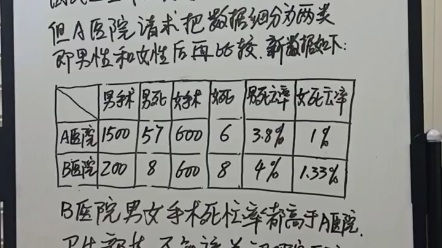 但A医院请求把数据细分为两类
即男性和女性后再比较.新数据如下:
男手术 男死 女手术 女死 男死亡率 女死亡率
A医院 1500 57 600 6 3.8% 1%
B医院 200 8 600 8 4% 1.33%
B医院男女手术死亡率都高于A医院.